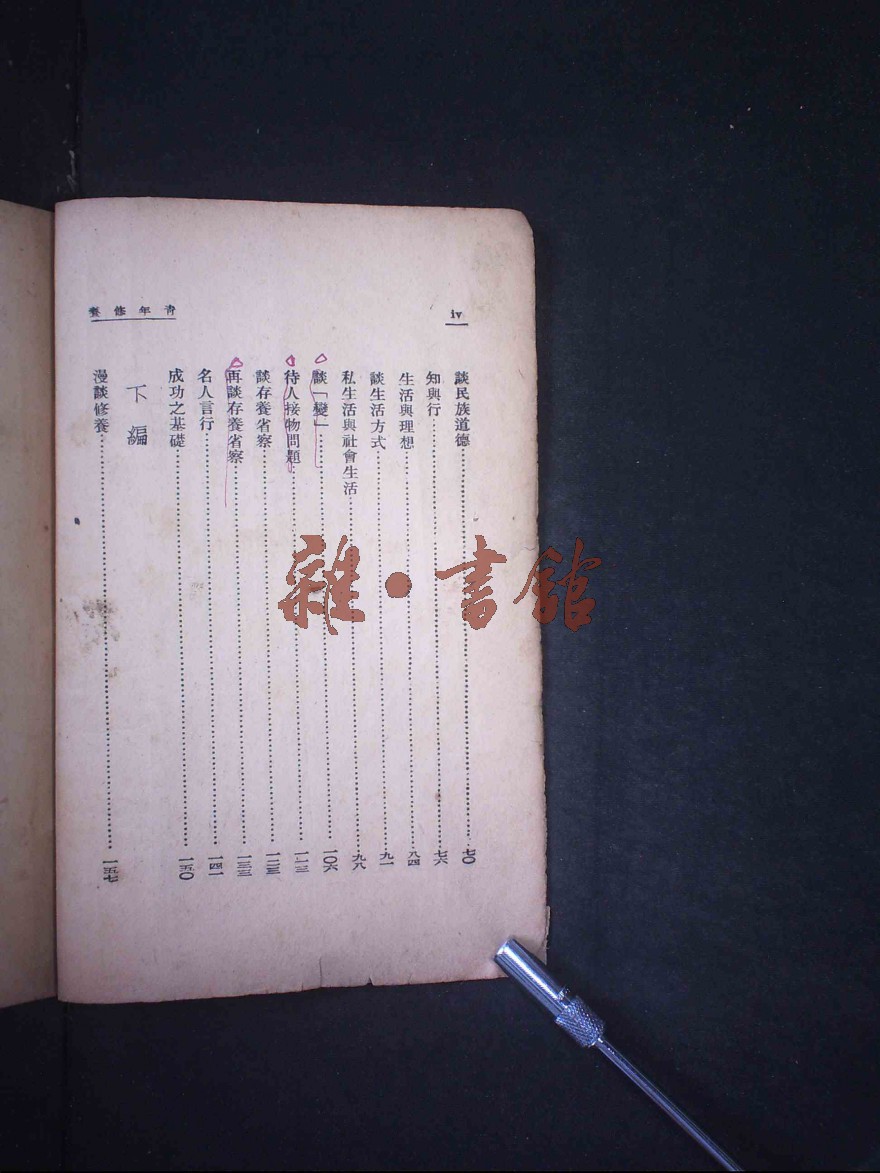 iv
青年修養
談民族道德 七〇
知與行 七六
生活與理想 八四
談生活方式 九一
私生活與社會生活 九八
談「變」 一〇六
待人接物問題 一一三
談存養省察 一二三
再談存養省察 一三三
名人言行 一四一
成功之基礎 一五〇
下編
漫談修養 一五七
雜·書館